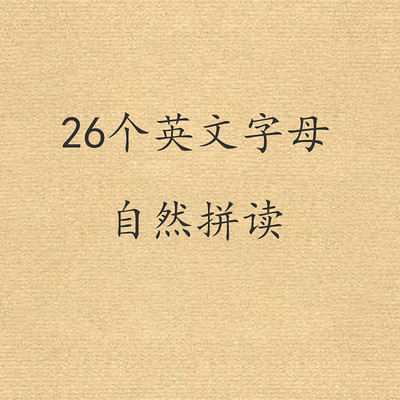 26个英文字母
自然拼读